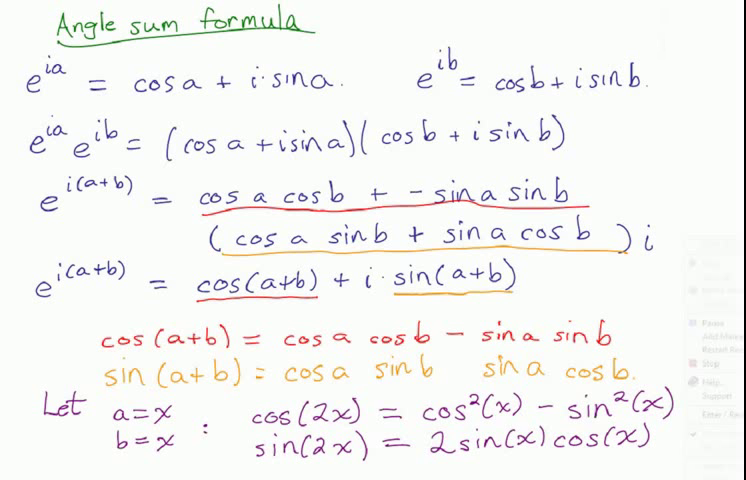 Angle sum formula
e^{ia} = cos a + i · sin a. e^{ib} = cos b + i sin b.
e^{ia} e^{ib} = (cos a + i sin a)(cos b + i sin b)
e^{i(a+b)} = cos a cos b + - sin a sin b
(cos a sin b + sin a cos b) i
e^{i(a+b)} = cos(a+b) + i · sin(a+b)
cos(a+b) = cos a cos b - sin a sin b
sin(a+b) = cos a sin b sin a cos b.
Let a=x : cos(2x) = cos²(x) - sin²(x)
b=x sin(2x) = 2 sin(x) cos(x)
Pause
Stop
Help..
Support